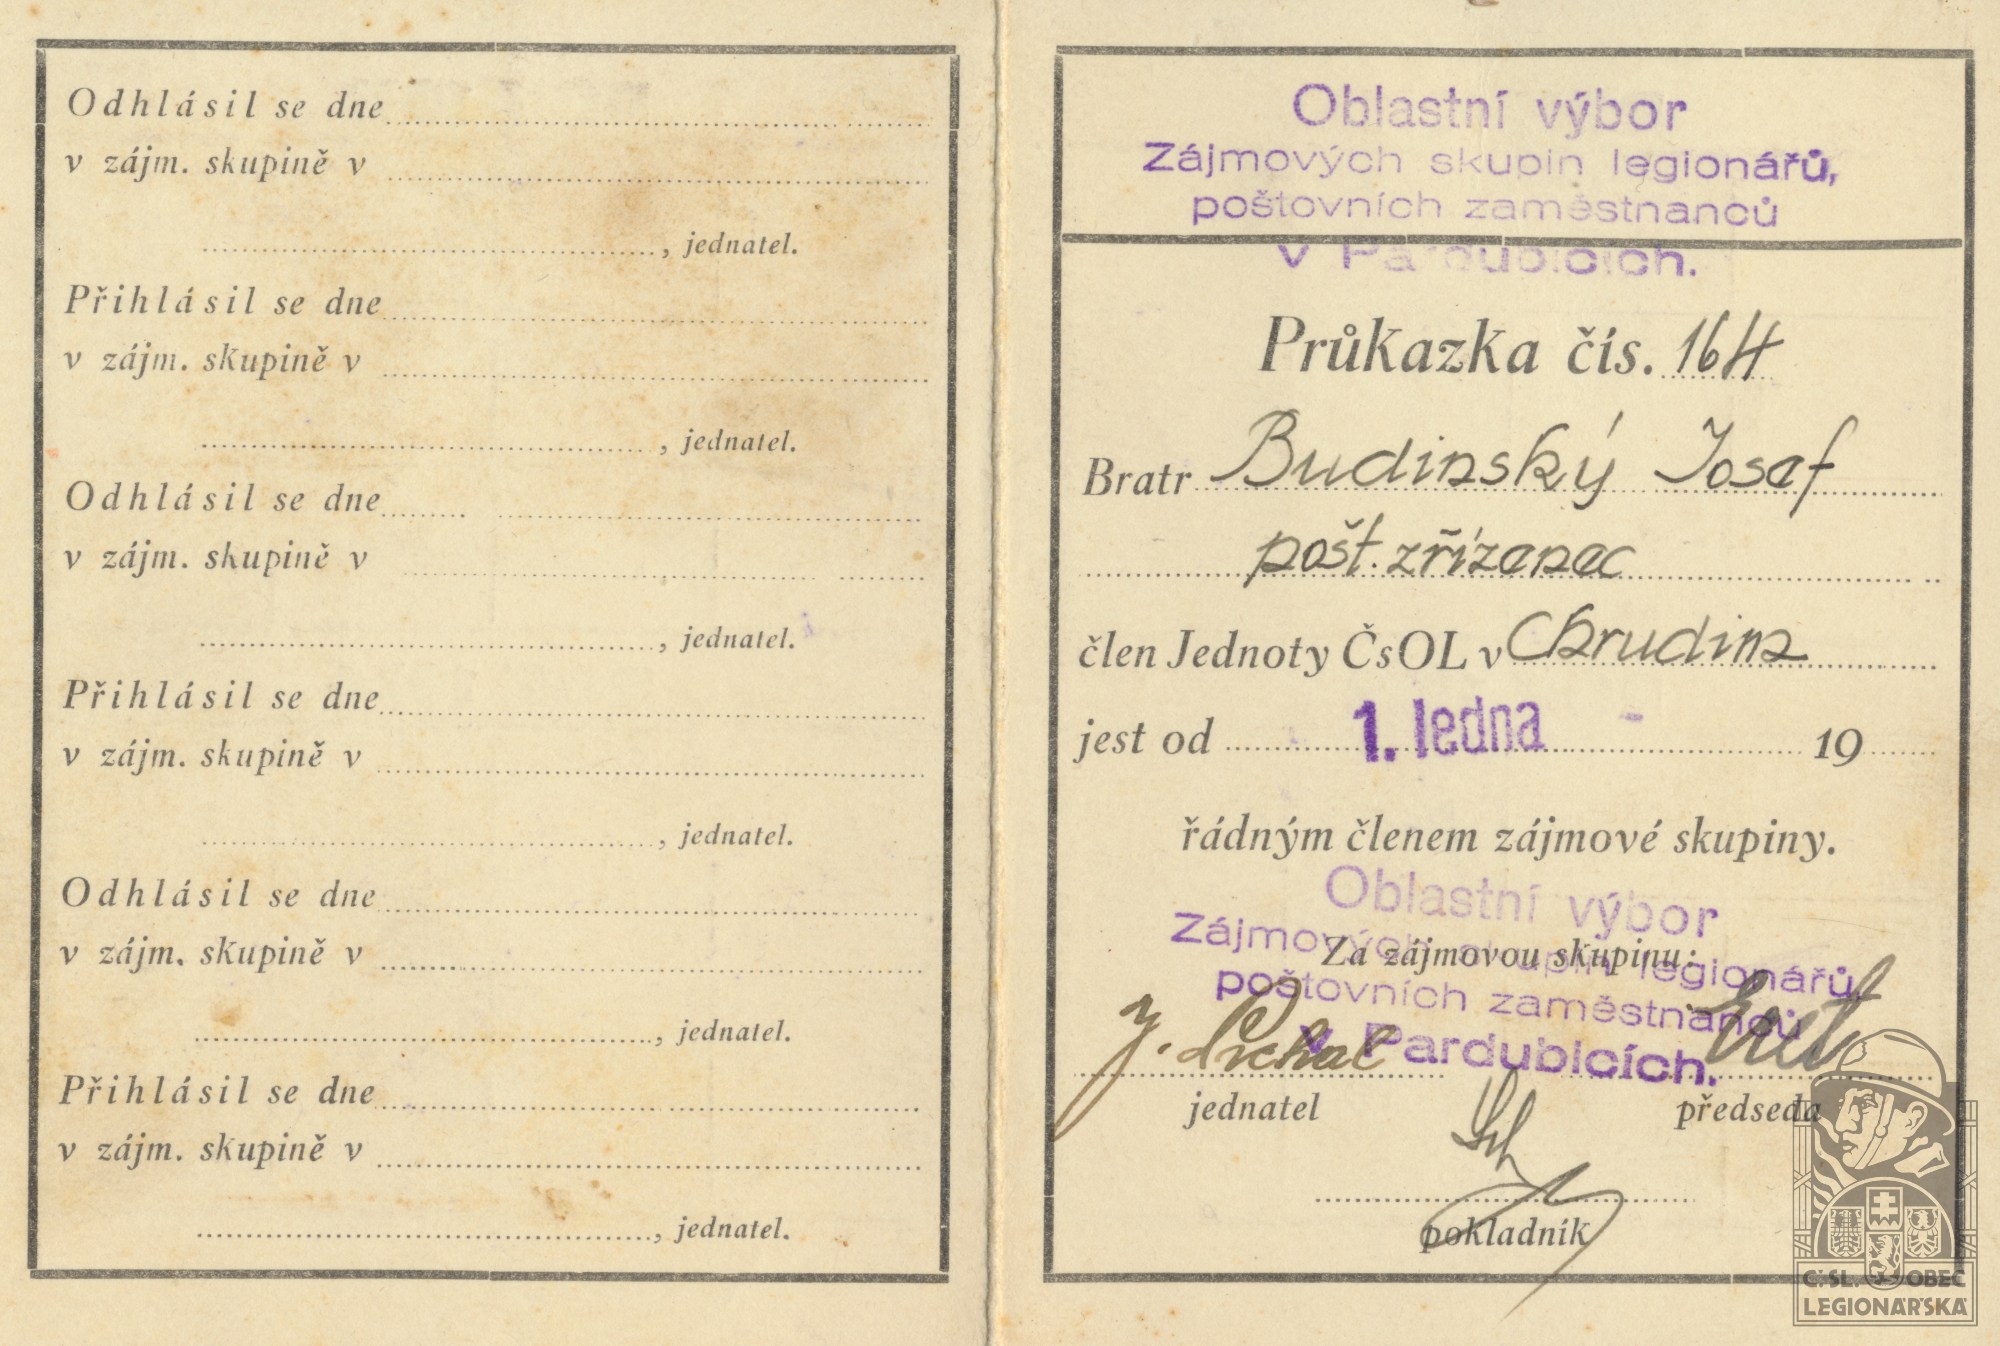 Odhlásil se dne
v zájm. skupině v
, jednatel.
Přihlásil se dne
v zájm. skupině v
, jednatel.
Odhlásil se dne
v zájm. skupině v
, jednatel.
Přihlásil se dne
v zájm. skupině v
, jednatel.
Odhlásil se dne
v zájm. skupině v
, jednatel.
Přihlásil se dne
v zájm. skupině v
, jednatel.
Oblastní výbor
Zájmových skupin legionářů,
poštovních zaměstnanců
v Pardubicích.
Průkazka čís. 164
Bratr Budinský Josef
pošt. zřízenec
člen Jednoty ČsOL v Chrudim
jest od 1. ledna 19
řádným členem zájmové skupiny.
Oblastní výbor
Zájmových skupin legionářů,
Za zájmovou skupinu:
poštovních zaměstnanců
v Pardubicích.
jednatel předseda
pokladník
Č.SL. OBEC
LEGIONÁŘSKÁ